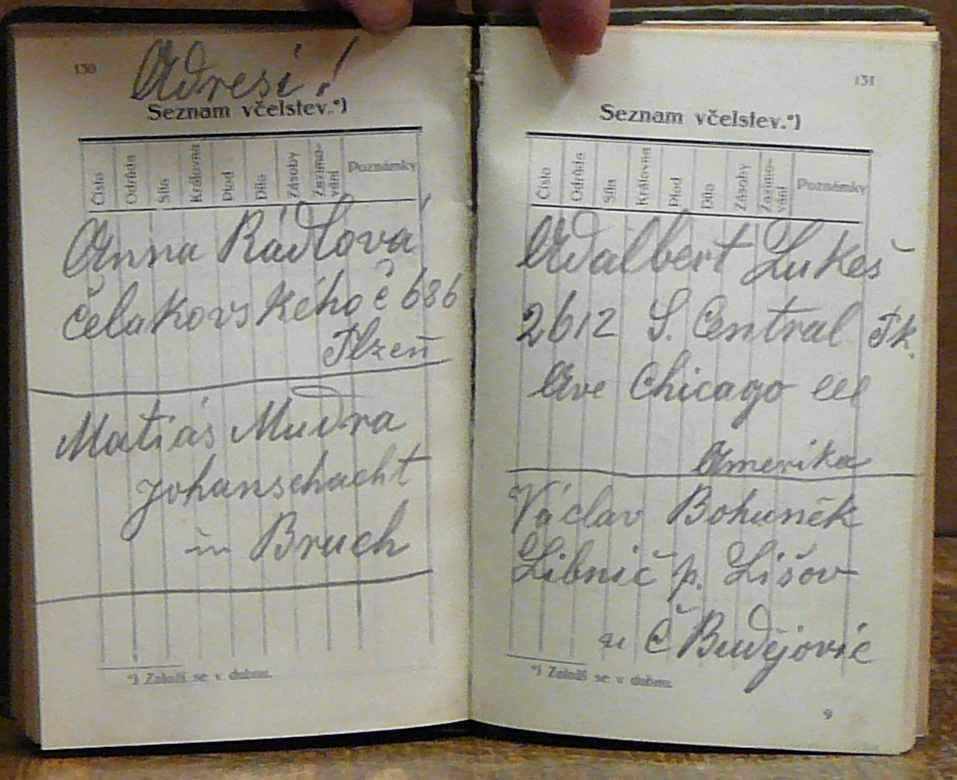 130
Adresi!
Seznam včelstev.*)
Číslo Odrůda Síla Královna Plod Díla Zásoby Zazimo-vání Poznámky
Anna Rádlová
Čelakovského č 686
Plzeň
Matiás Mudra
Johanschacht
in Bruch
*) Založí se v dubnu.
131
Seznam včelstev.*)
Číslo Odrůda Síla Královna Plod Díla Zásoby Zazimo-vání Poznámky
Adalbert Lukeš
2612 S. Central Pk.
Ave Chicago Ill
Amerika
Václav Bohuněk
Libnič p. Lišov
u Č Budějovic
*) Založí se v dubnu.
9